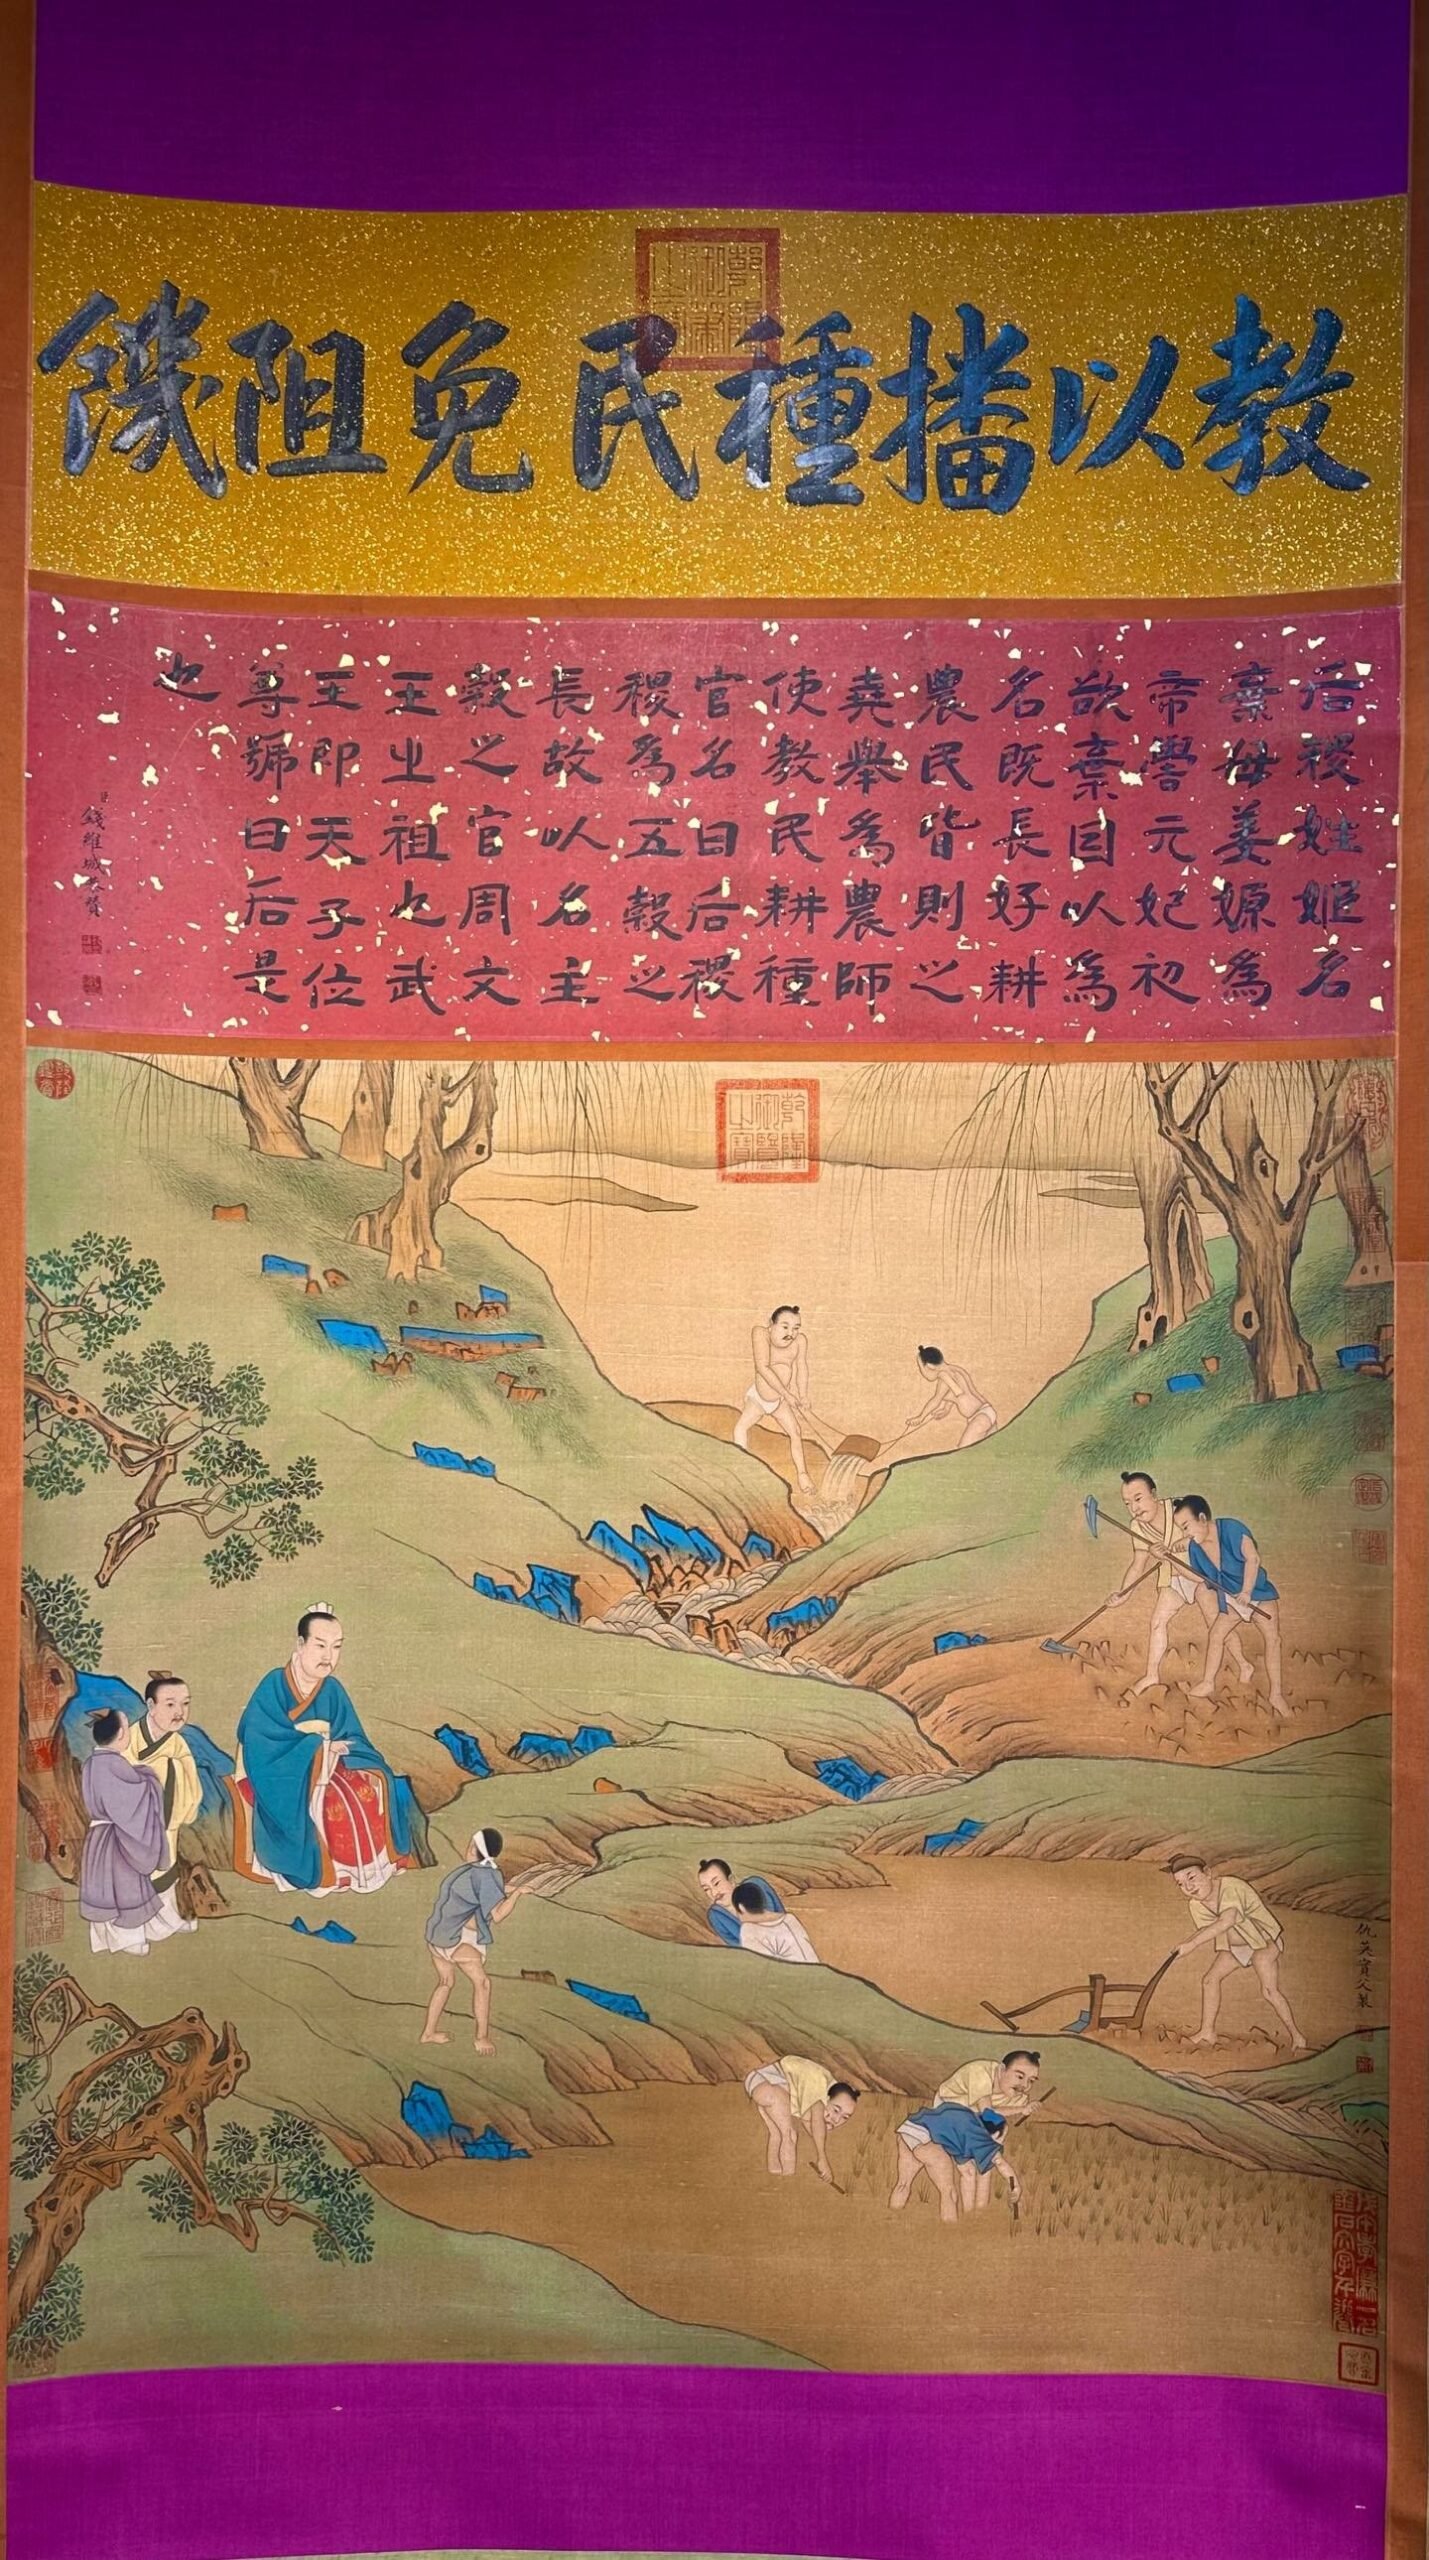 教以播種民免阻饑
乾隆御筆之寶
后稷姓姬名
棄母姜嫄為
帝嚳元妃初
欲棄因以為
名既長好耕
農民皆則之
堯舉為農師
使教民耕種
官名曰后稷
稷為五穀之
長故以名主
穀之官周文
王之祖也武
王即天子位
尊號曰后是
也
臣錢維城恭贊
乾隆御覽之寶
仇英實父製